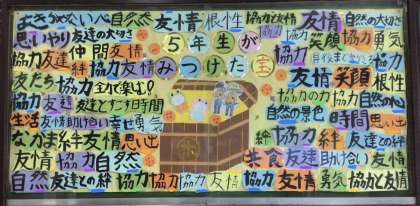 あきらめない心 自然 友情 根性 協力 友情 友情 自然の大切さ
思いやり 友達の大切さ 5年生が 協力 笑顔 協力 勇気
協力 友達 仲間 友情 協力
友達 絆 協力 友情 みつけた宝 友情 笑顔
友だち 協力 全力で楽しむ! 協力 協力の力 協力 自然の心
協力 友達 友達とすごす時間 自然の景色
生活 友情 助け合い 幸せ 勇気 絆 協力 時間 思い出
なかま 絆 友情 思い出 絆 協力 絆 友達との絆
友情 協力 自然 共食 友達 助け合い 友情
自然 友達との絆 協力 協力 友情 協力 友情 勇気 協力と友情